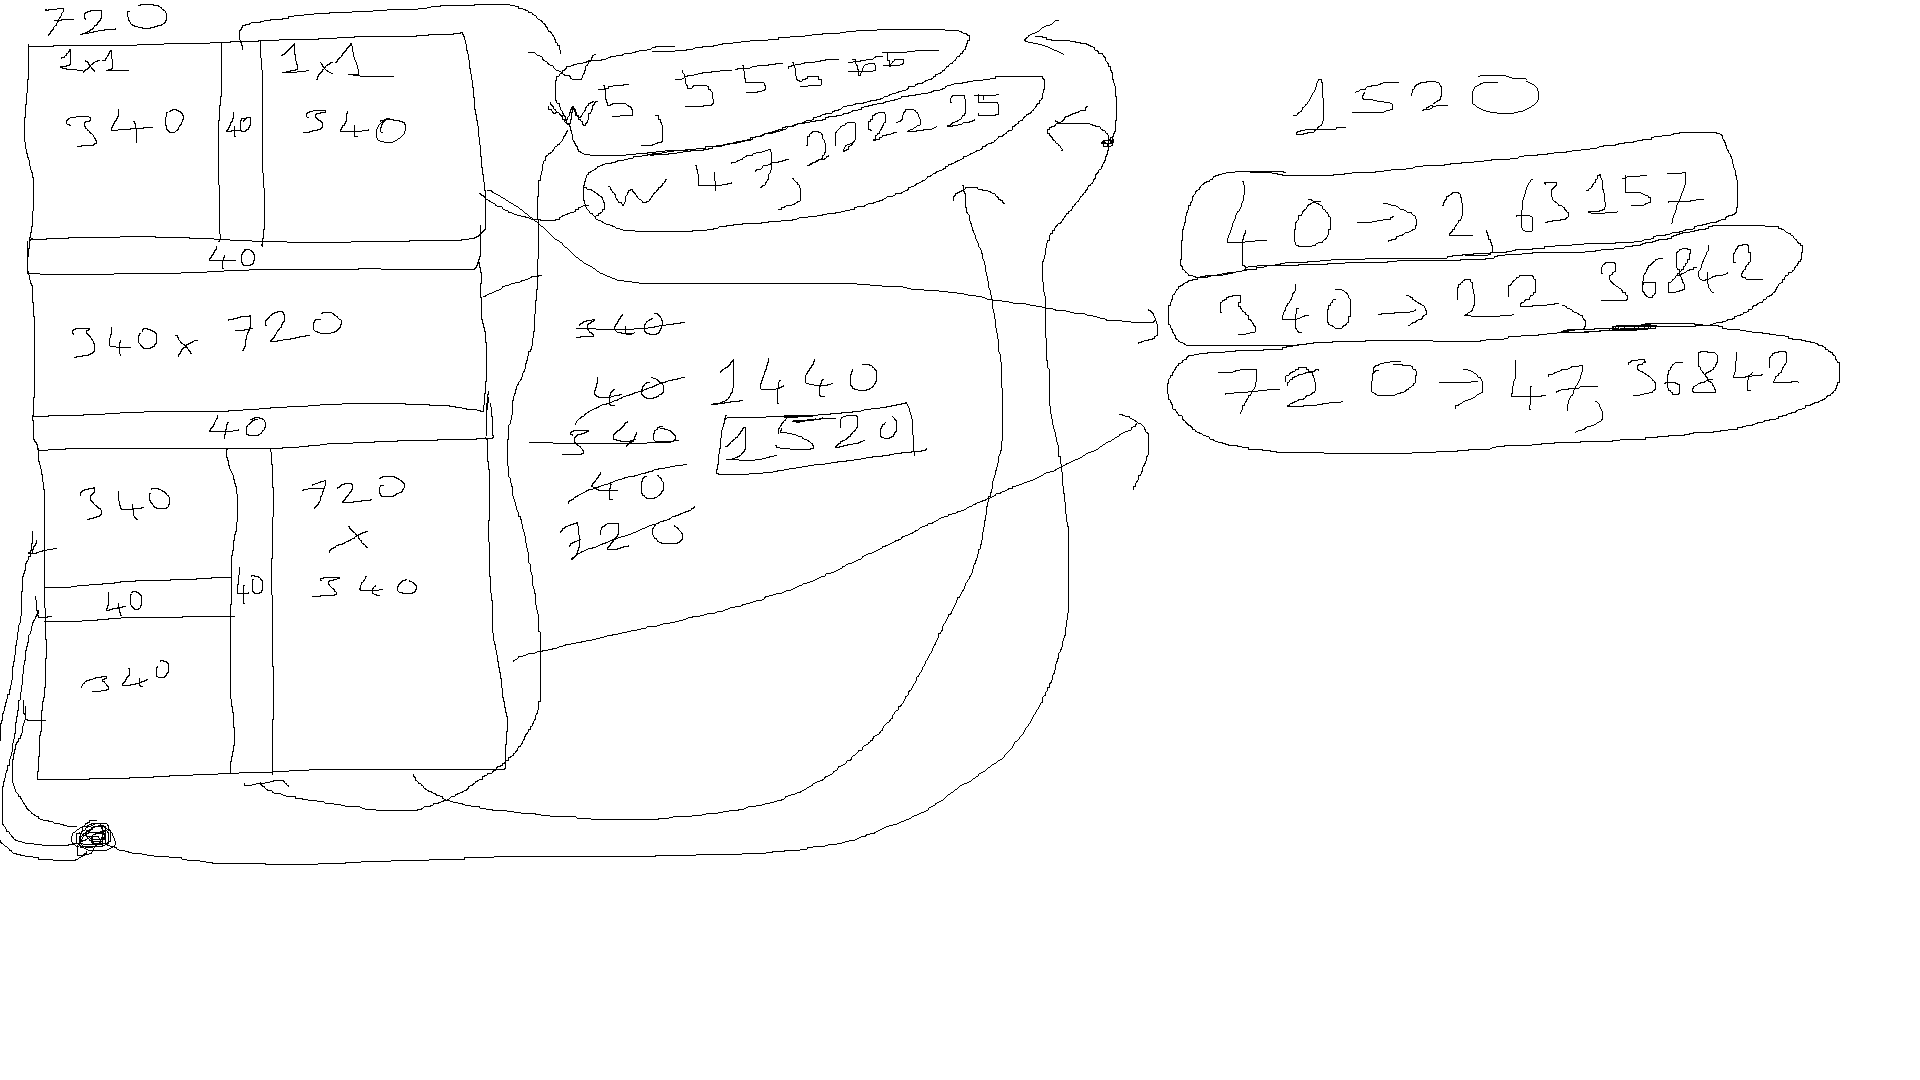 720
1x1
1x1
340
40
340
40
340 x 720
40
340
40
720
x
340
40
340
w5,555555
w 47,222225
340
40
340
40
720
1440
1520
1520
40 → 2,63157
340 → 22,36842
720 → 47,36842